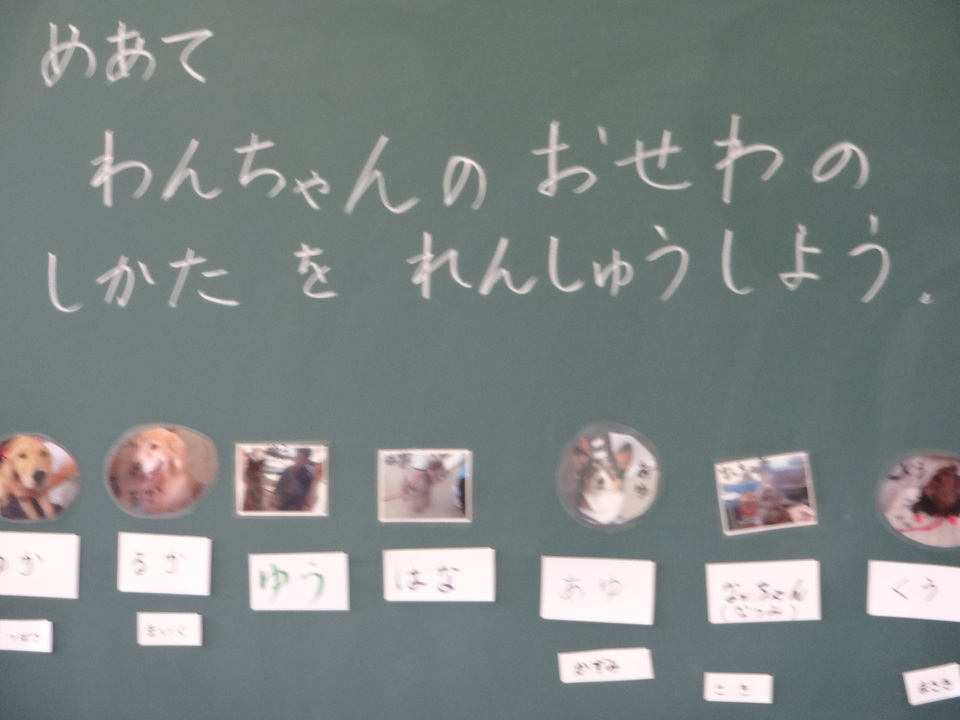 めあて
わんちゃんのおせわの
しかたをれんしゅうしよう。
るか
ゆう
はな
あゆ
なっちゃん
(なつみ)
くう
かずみ